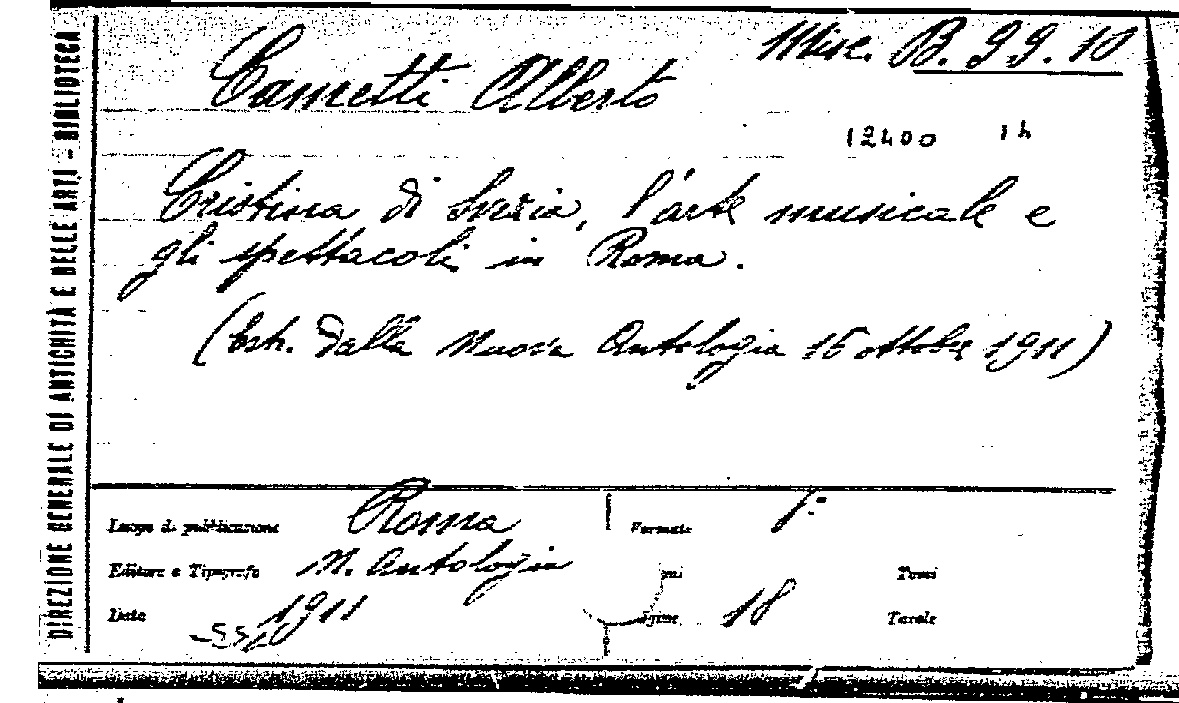 DIREZIONE GENERALE DI ANTICHITÀ E BELLE ARTI - BIBLIOTECA
Misc. B. 99. 10
Cametti Alberto
12400 14
Cristina di Svezia, l'arte musicale e
gli spettacoli in Roma.
(Estr. dalla Nuova Antologia 16 ottobre 1911)
Luogo di pubblicazione Roma
Formato 8º
Editore o Tipografo N. Antologia
Tomi
Data 1911
18
Tavole